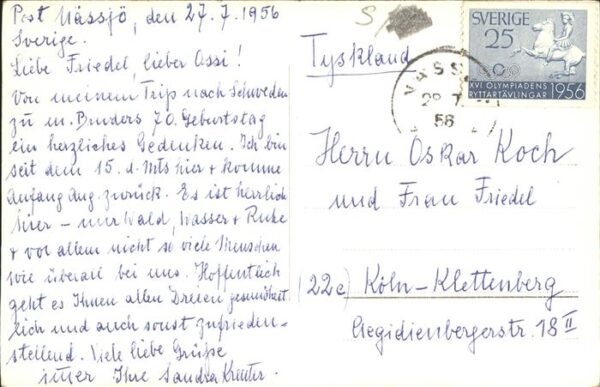 Post Nässjö, den 27.7.1956
Sverige.
Liebe Friedel, lieber Ossi!
Von meinem Trip nach Schweden
zu m. Bruders 70. Geburtstag
ein herzliches Gedenken. Ich bin
seit dem 15. d. Mts hier + komme
Anfang Aug. zurück. Es ist herrlich
hier – nur Wald, Wasser + Ruhe
+ vor allem nicht so viele Menschen
wie überall bei uns. Hoffentlich
geht es Ihnen allen Dreien gesundheit-
lich und auch sonst zufrieden-
stellend. Viele liebe Grüße
Ihre Sandra
S/
Tyskland
SVERIGE
25
XVI OLYMPIADENS
RYTTARTÄVLINGAR 1956
56
Herrn Oskar Koch
und Frau Friedel
(22c) Köln-Klettenberg
Aegidienbergerstr. 18 II